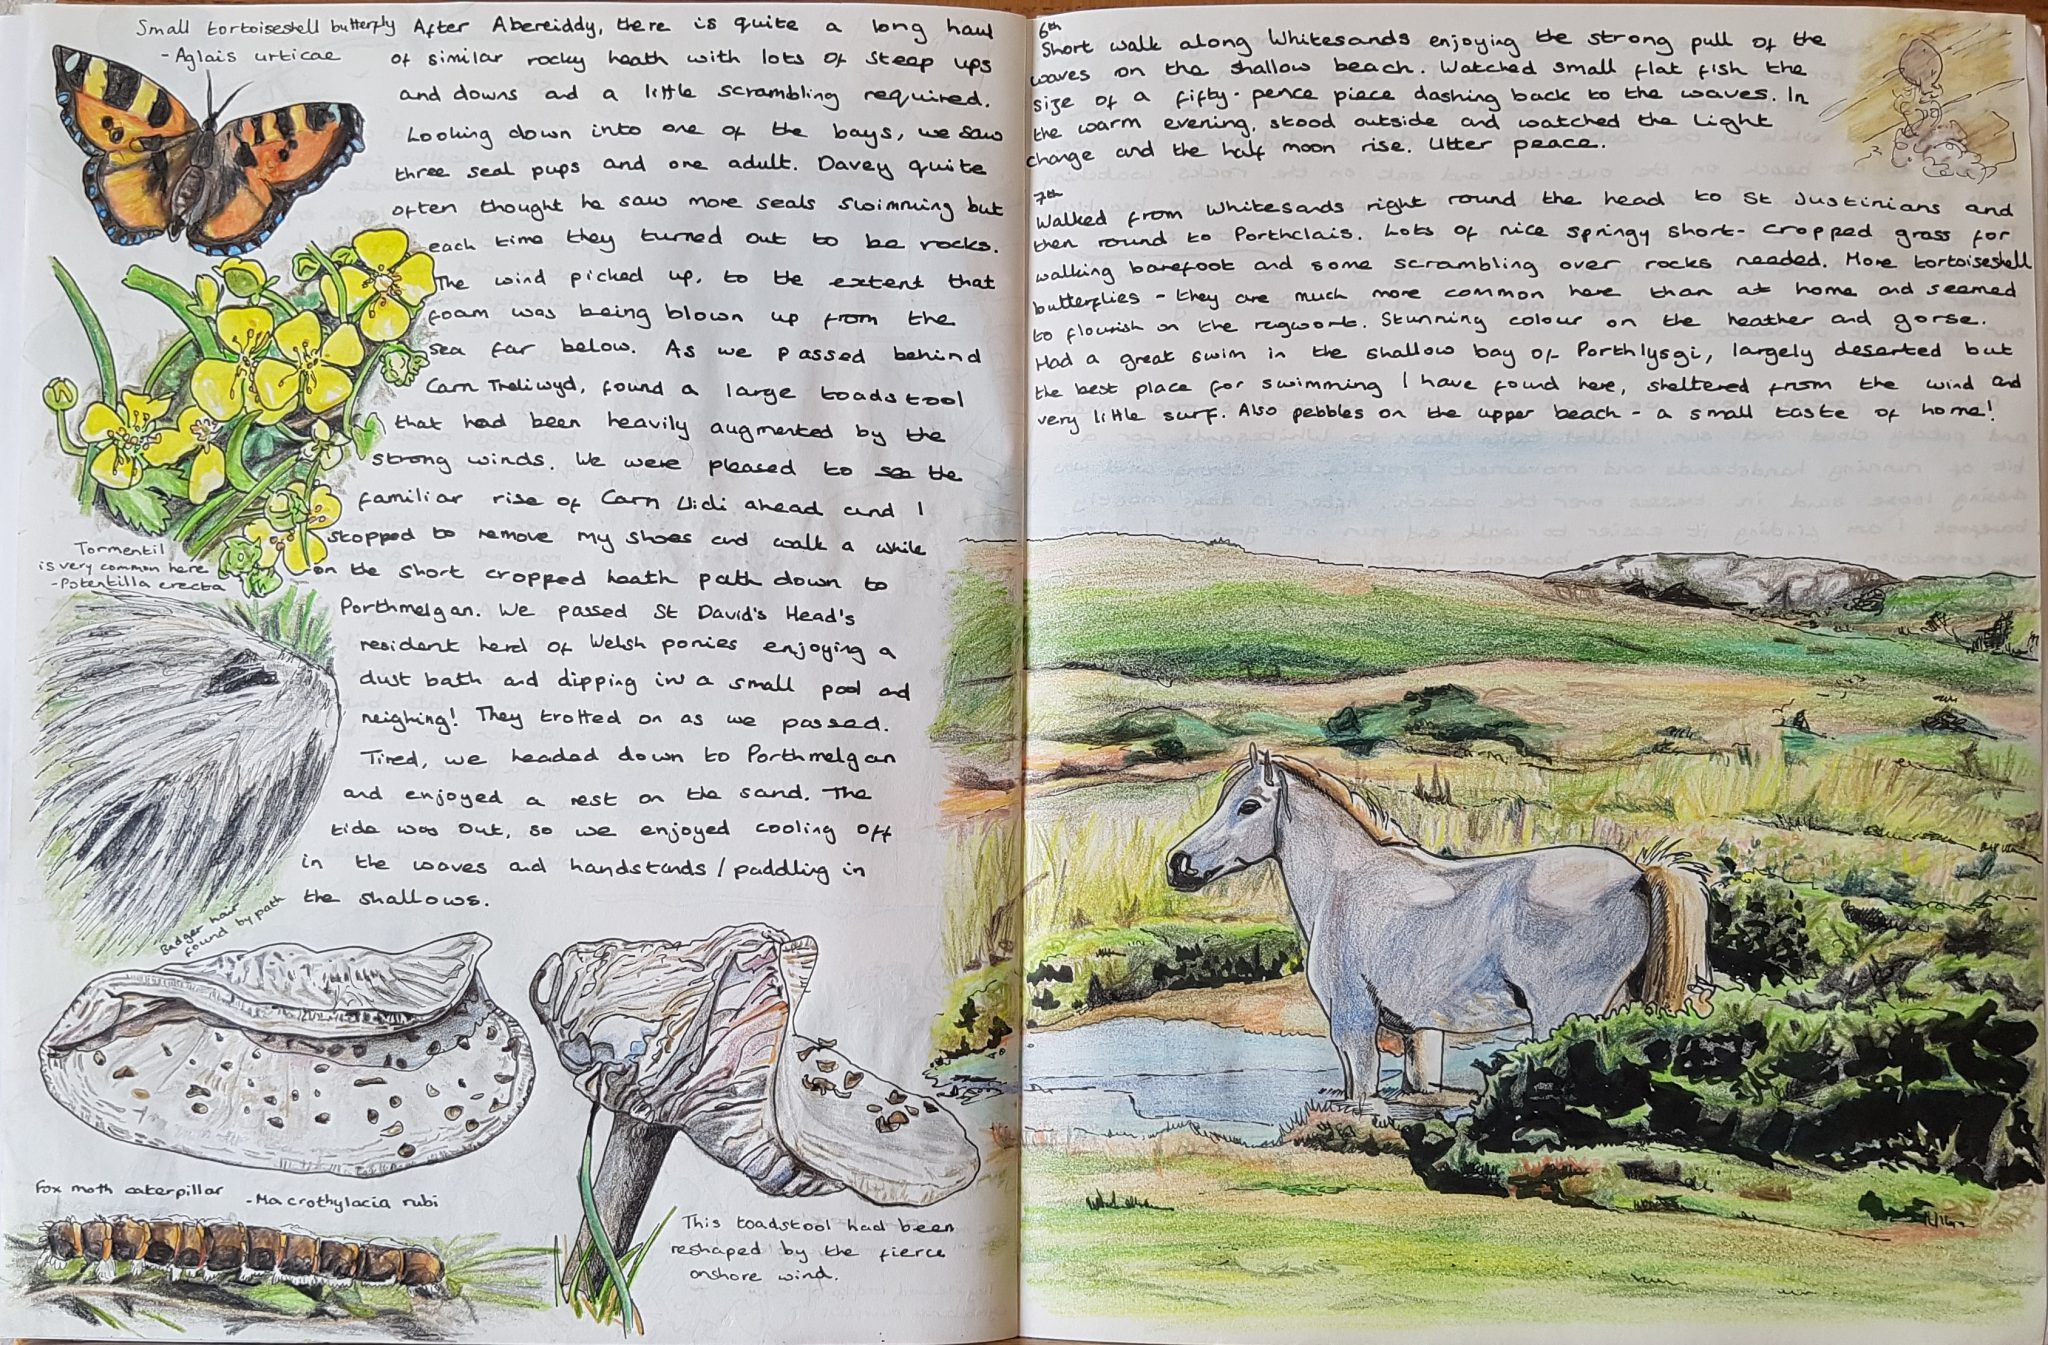 Small tortoiseshell butterfly
- Aglais urticae
After Abereiddy, there is quite a long haul
of similar rocky heath with lots of steep ups
and downs and a little scrambling required.
Looking down into one of the bays, we saw
three seal pups and one adult. Davey quite
often thought he saw more seals swimming but
each time they turned out to be rocks.
The wind picked up, to the extent that
foam was being blown up from the
sea far below. As we passed behind
Carn Treliwyd, found a large toadstool
that had been heavily augmented by the
strong winds. We were pleased to see the
familiar rise of Carn Llidi ahead and I
stopped to remove my shoes and walk a while
on the short cropped heath path down to
Porthmelgan. We passed St David's Head's
resident herd of Welsh ponies enjoying a
dust bath and dipping in a small pool and
neighing! They trotted on as we passed.
Tired, we headed down to Porthmelgan
and enjoyed a rest on the sand. The
tide was out, so we enjoyed cooling off
in the waves and handstands / paddling in
the shallows.
Tormentil
is very common here
- Potentilla erecta
Badger hair
found by path
Fox moth caterpillar
- Macrothylacia rubi
This toadstool had been
reshaped by the fierce
onshore wind.
6th
Short walk along Whitesands enjoying the strong pull of the
waves on the shallow beach. Watched small flat fish the
size of a fifty-pence piece dashing back to the waves. In
the warm evening, stood outside and watched the light
change and the half moon rise. Utter peace.
7th
Walked from Whitesands right round the head to St Justinians and
then round to Porthclais. Lots of nice springy short-cropped grass for
walking barefoot and some scrambling over rocks needed. More tortoiseshell
butterflies - they are much more common here than at home and seemed
to flourish on the ragwort. Stunning colour on the heather and gorse.
Had a great swim in the shallow bay of Porthlysgi, largely deserted but
the best place for swimming I have found here, sheltered from the wind and
very little surf. Also pebbles on the upper beach - a small taste of home!